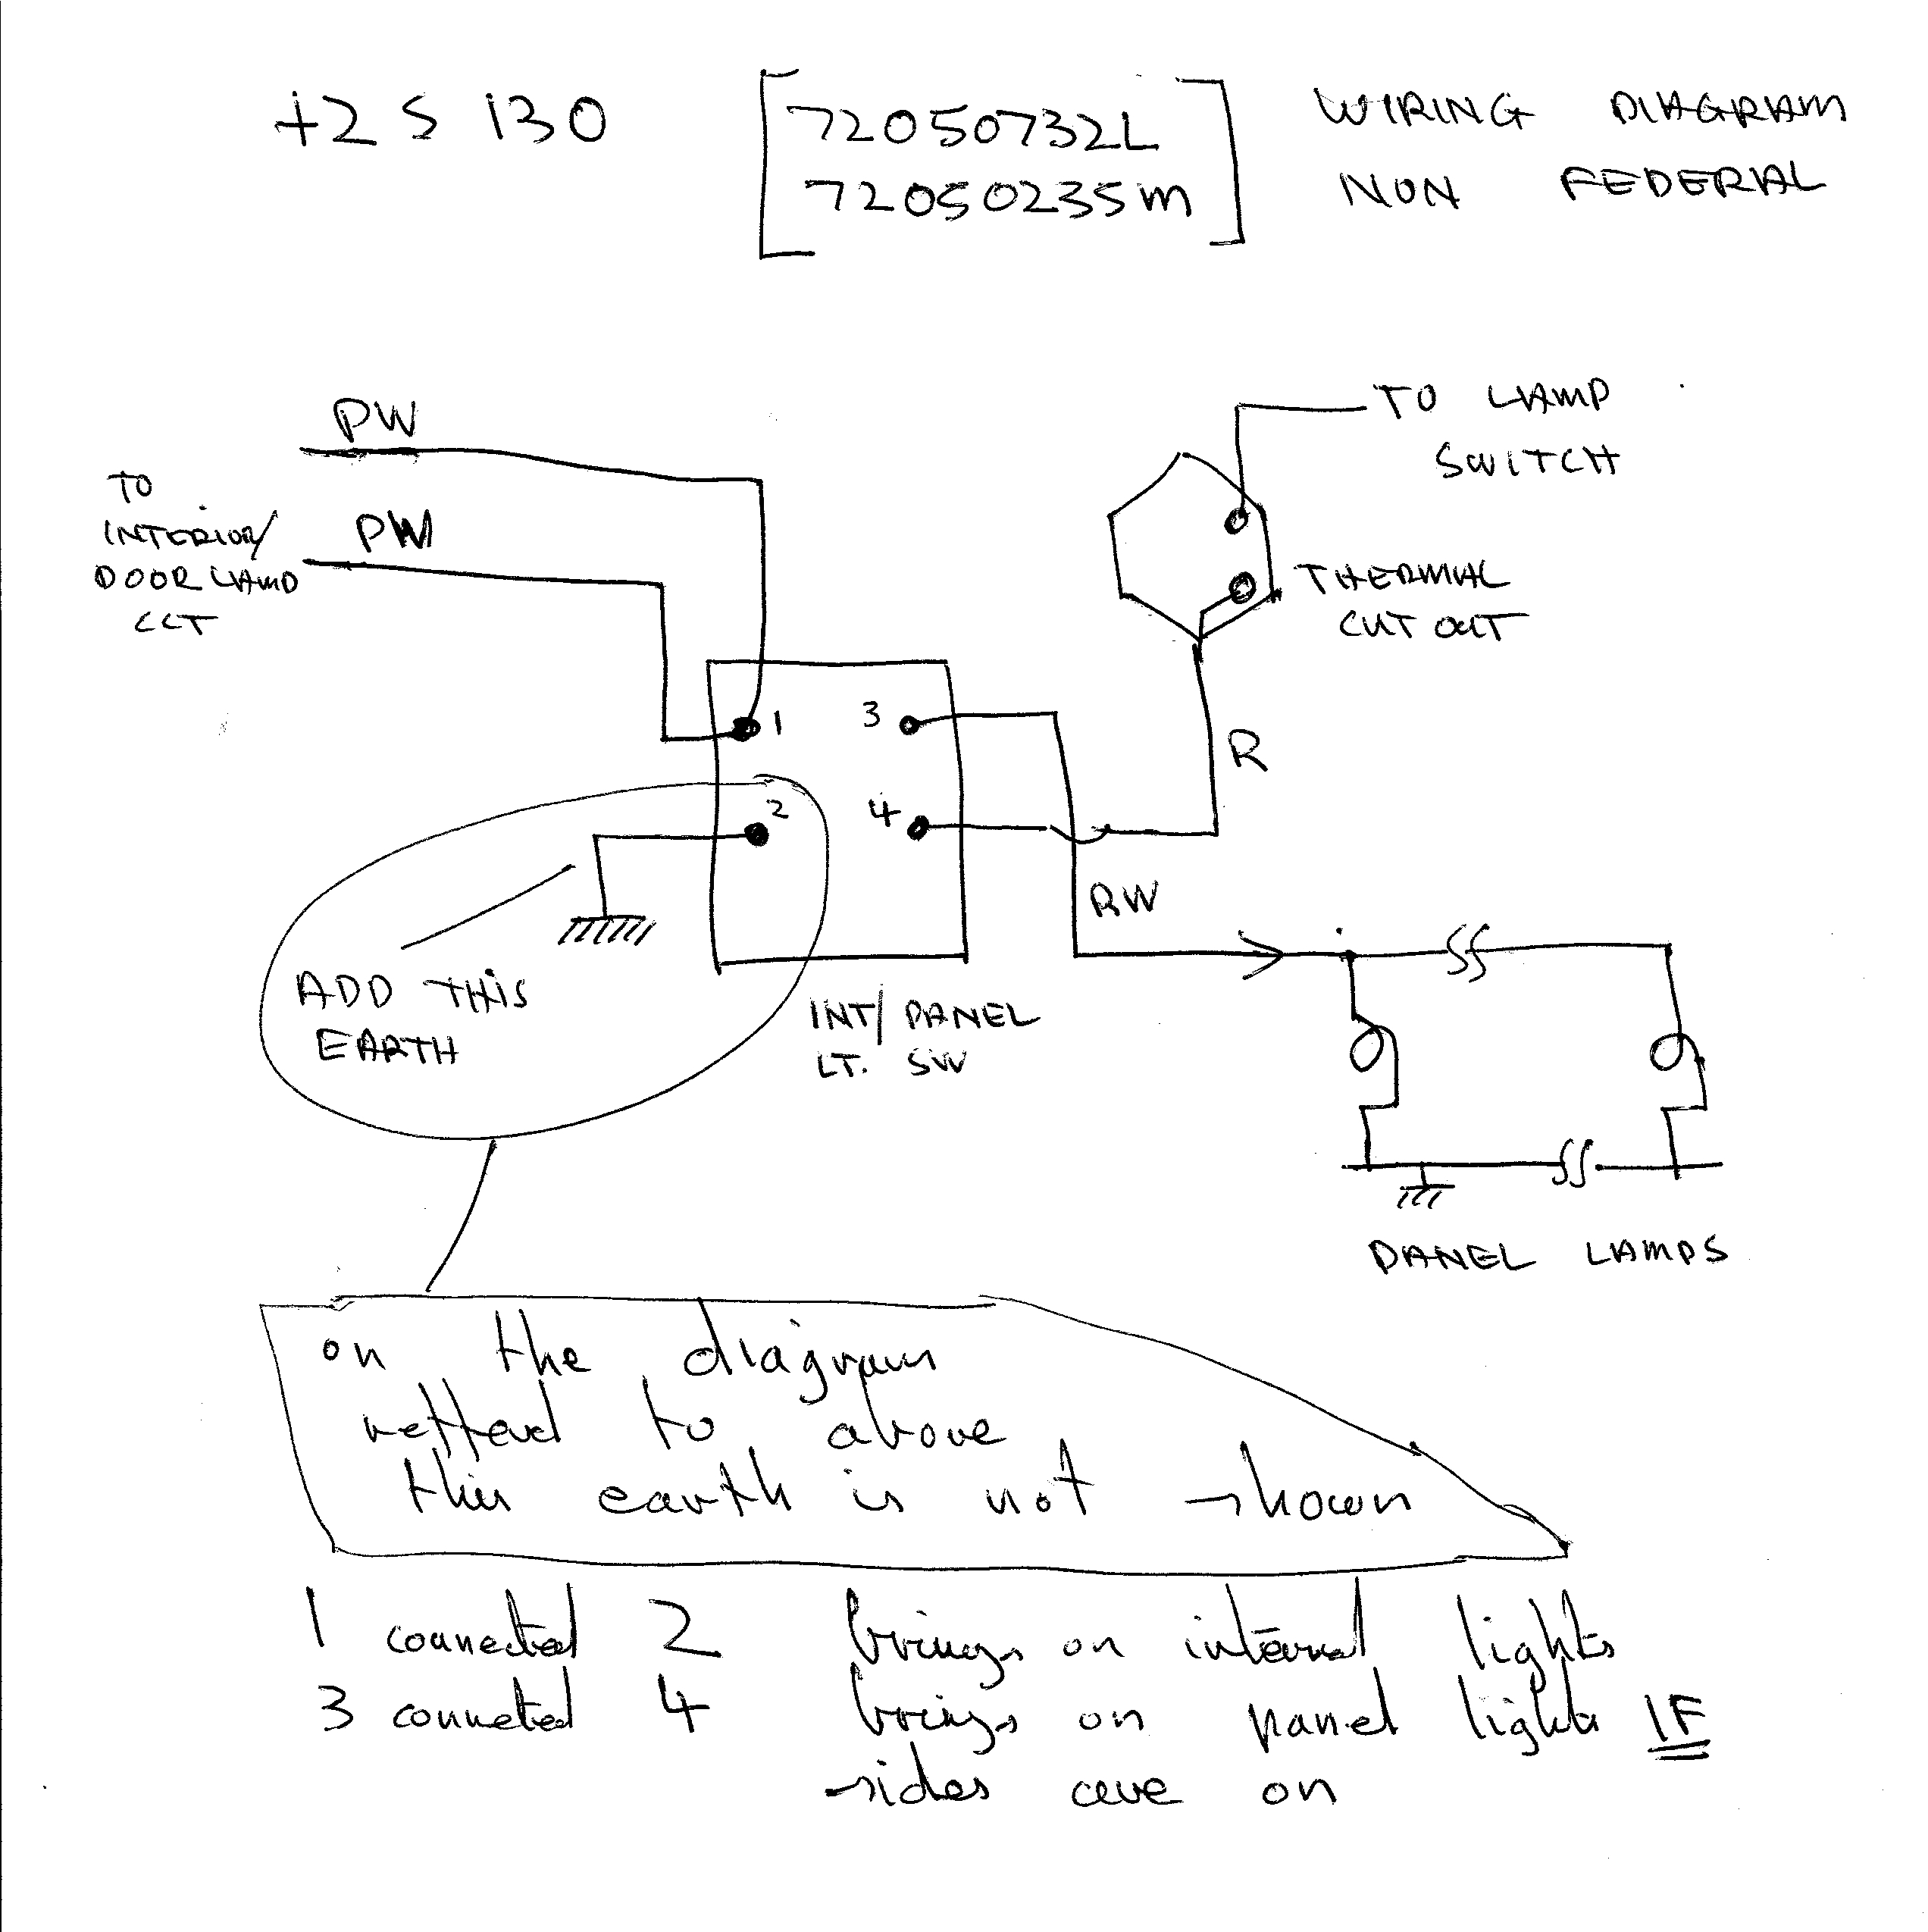 +2 S 130
72050732L
72050235m
WIRING DIAGRAM
NON FEDERAL
PW
PW
TO
INTERIOR/
DOOR LAMP
CCT
TO LAMP
SWITCH
THERMAL
CUT OUT
1
3
2
4
R
RW
ADD THIS
EARTH
INT/PANEL
LT. SW
PANEL LAMPS
on the diagram
reffered to above
this earth is not shown
1 connected 2 brings on internal lights
3 connected 4 brings on panel lights IF
sides are on